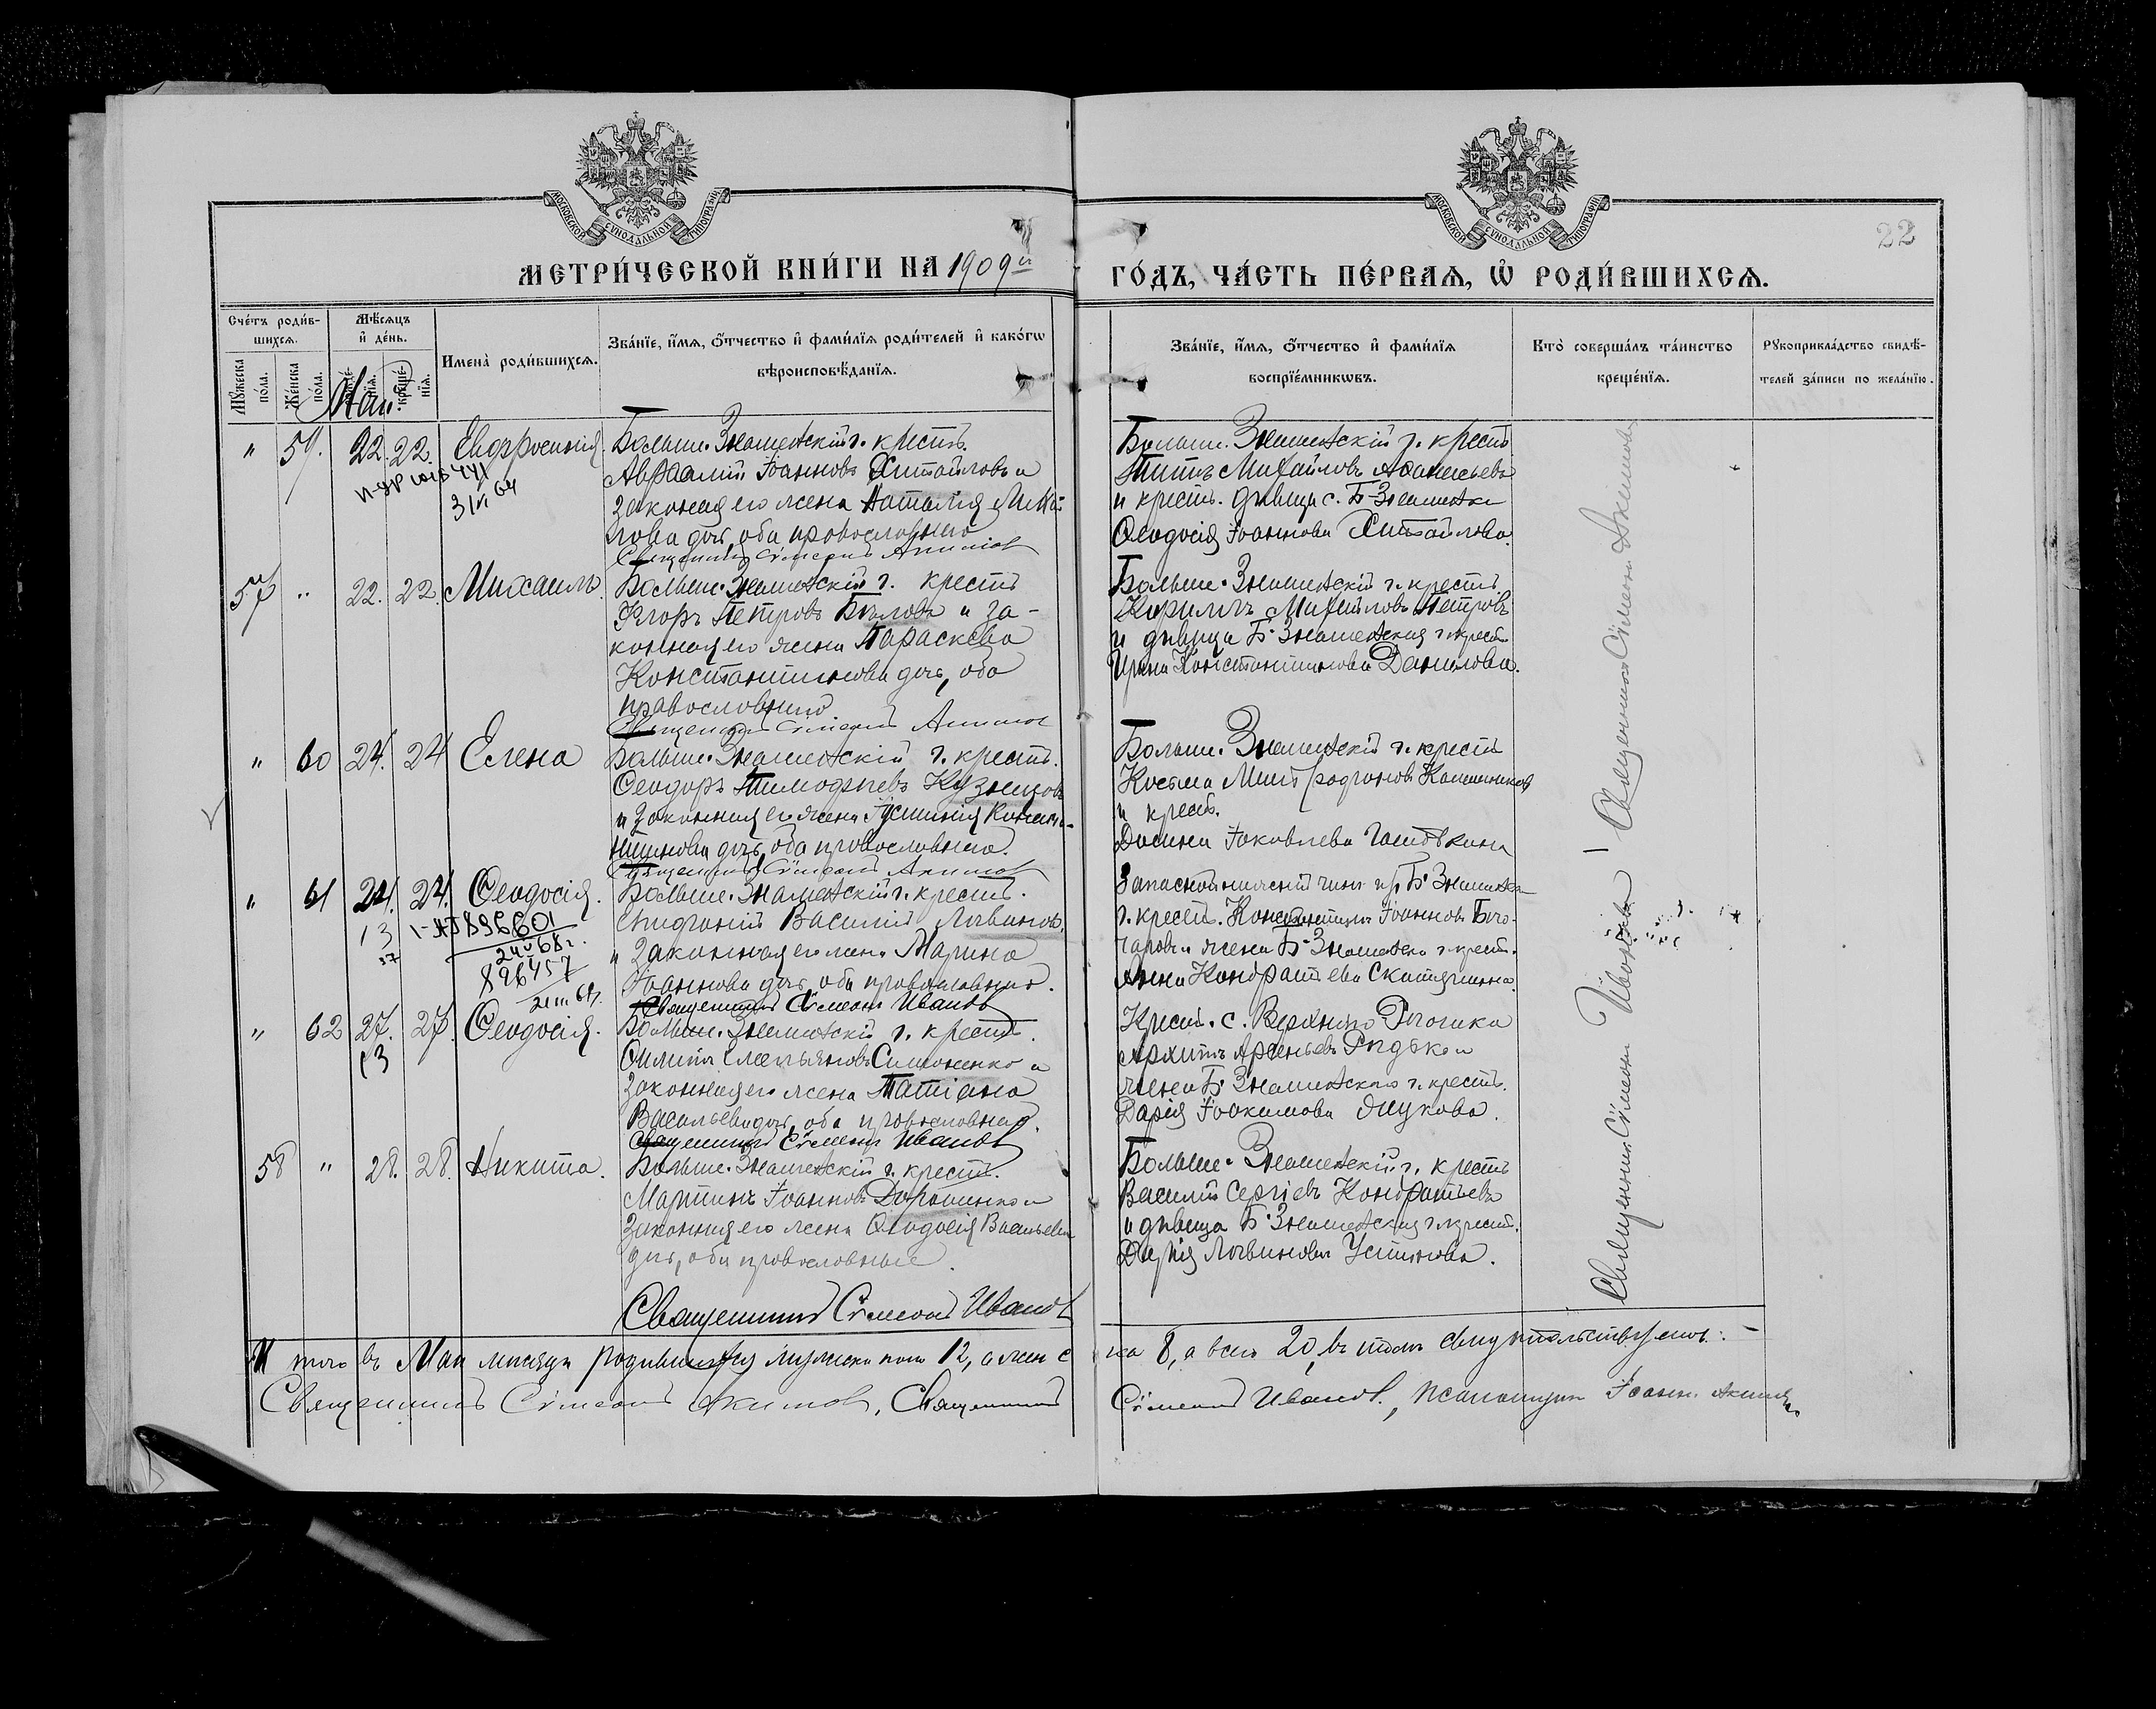 МОСКОВСКОЙ СѴНОДАЛЬНОЙ ТИПОГРАФІИ
МОСКОВСКОЙ СѴНОДАЛЬНОЙ ТИПОГРАФІИ
22
МЕТРИ́ЧЕСКОЙ КНИ́ГИ НА 1909й
ГО́ДЪ, ЧА́СТЬ ПЕ́РВАЯ, Ѡ҆ РОДИ́ВШИХСЯ.
Сче́тъ роди́в-
шихся.
Мѣ́сяцъ
и҆ де́нь.
Мꙋ́жеска по́ла.
Же́нска по́ла.
рожде́-нїя.
креще́-нїя.
Имена̀ роди́вшихся.
Зва́нїе, и҆́мя, ѻ҆́тчество и҆ фами́лїя роди́телей и҆ како́гѡ
вѣроисповѣ́данїя.
Зва́нїе, и҆́мя, ѻ҆́тчество и҆ фами́лїя
воспрїе́мникѡвъ.
Кто̀ соверша́лъ та́инство
креще́нїя.
Рꙋкоприкла́дство свидѣ́-
телей за́писи по жела́нїю.
Май
" 59. 22. 22. Евфросинія
31 VI 64
Больше-Знаменскій г. крестъ.
Авраамій Іоанновъ Хитайловъ и
законная его жена Наталія
дочь, оба православные
Священникъ Сѵмеонъ Акимов
Больше-Знаменскій г. крестъ
Титъ Михайловъ Афанасьевъ
и крестъ. дѣвица с. Б-Знаменки
Ѳеодосія Іоаннова Хитайлова.
57 " 22. 22. Михаилъ.
Больше-Знаменскій г. крестъ
Егоръ Петровъ Бѣловъ и за-
конная его жена Параскева
Константинова дочь, оба
православные
Священникъ Сѵмеонъ Акимов
Больше-Знаменскій г. крестъ.
Кириллъ Михайловъ Петровъ
и дѣвица Б-Знаменская г. крест.
Ирина Константинова Данилова.
" 60 24. 24 Елена
Больше-Знаменскій г. крестъ.
Ѳеодоръ Тимофѣевъ Кузнецовъ
и законная его жена Іустинія Конста-
нтинова дочь, оба православные.
Священникъ Сѵмеонъ Акимов
Больше-Знаменскій г. крестъ
Косьма Митрофановъ
и крест.
Іаковлева
" 61 24. 24. Ѳеодосія.
13
896601
24 V 68 г.
896457
Больше-Знаменскій г. крестъ.
Епифаній Василій Логвиновъ,
и законная его жена Марина
Іоаннова дочь, оба православные.
Священникъ Сѵмеонъ Иванов
Б-Знаменки
г. крест. Константинъ Іоанновъ
жена Б-Знаменска г. крест.
Анна Кондратьева
" 62 27. 27. Ѳеодосія.
13
Больше-Знаменскій г. крестъ.
Филиппъ Емельяновъ Симоненко и
законная его жена Татіана
Васильева дочь, оба православные.
Священникъ Сѵмеонъ Иванов
Крест. с. Верхняго Рогачика
Архипъ Арсеньевъ Рѣдька и
жена Б-Знаменскаго г. крестъ.
Дарія Іоакимова
58 " 28. 28. Никита.
Больше-Знаменскій г. крестъ.
Мартинъ Іоанновъ Дорошенко и
законная его жена Ѳеодосія Васильева
дочь, оба православные.
Священникъ Сѵмеонъ Иванов
Больше-Знаменскій г. крестъ
Василій Сергіевъ Кондратьевъ
и дѣвица Б-Знаменская г. крест.
Дарія Логвинова Устинова.
Священникъ Сѵмеонъ Ивановъ | Священникъ Сѵмеон Акимовъ
Итого въ Маи мѣсяцѣ родившихся мужеска пола 12, а женс
ка 8, а всего 20, въ томъ свидѣтельствуемъ: -
Священникъ Сѵмеонъ Акимов, Священникъ
Сѵмеонъ Иванов., псаломщик Іоанн